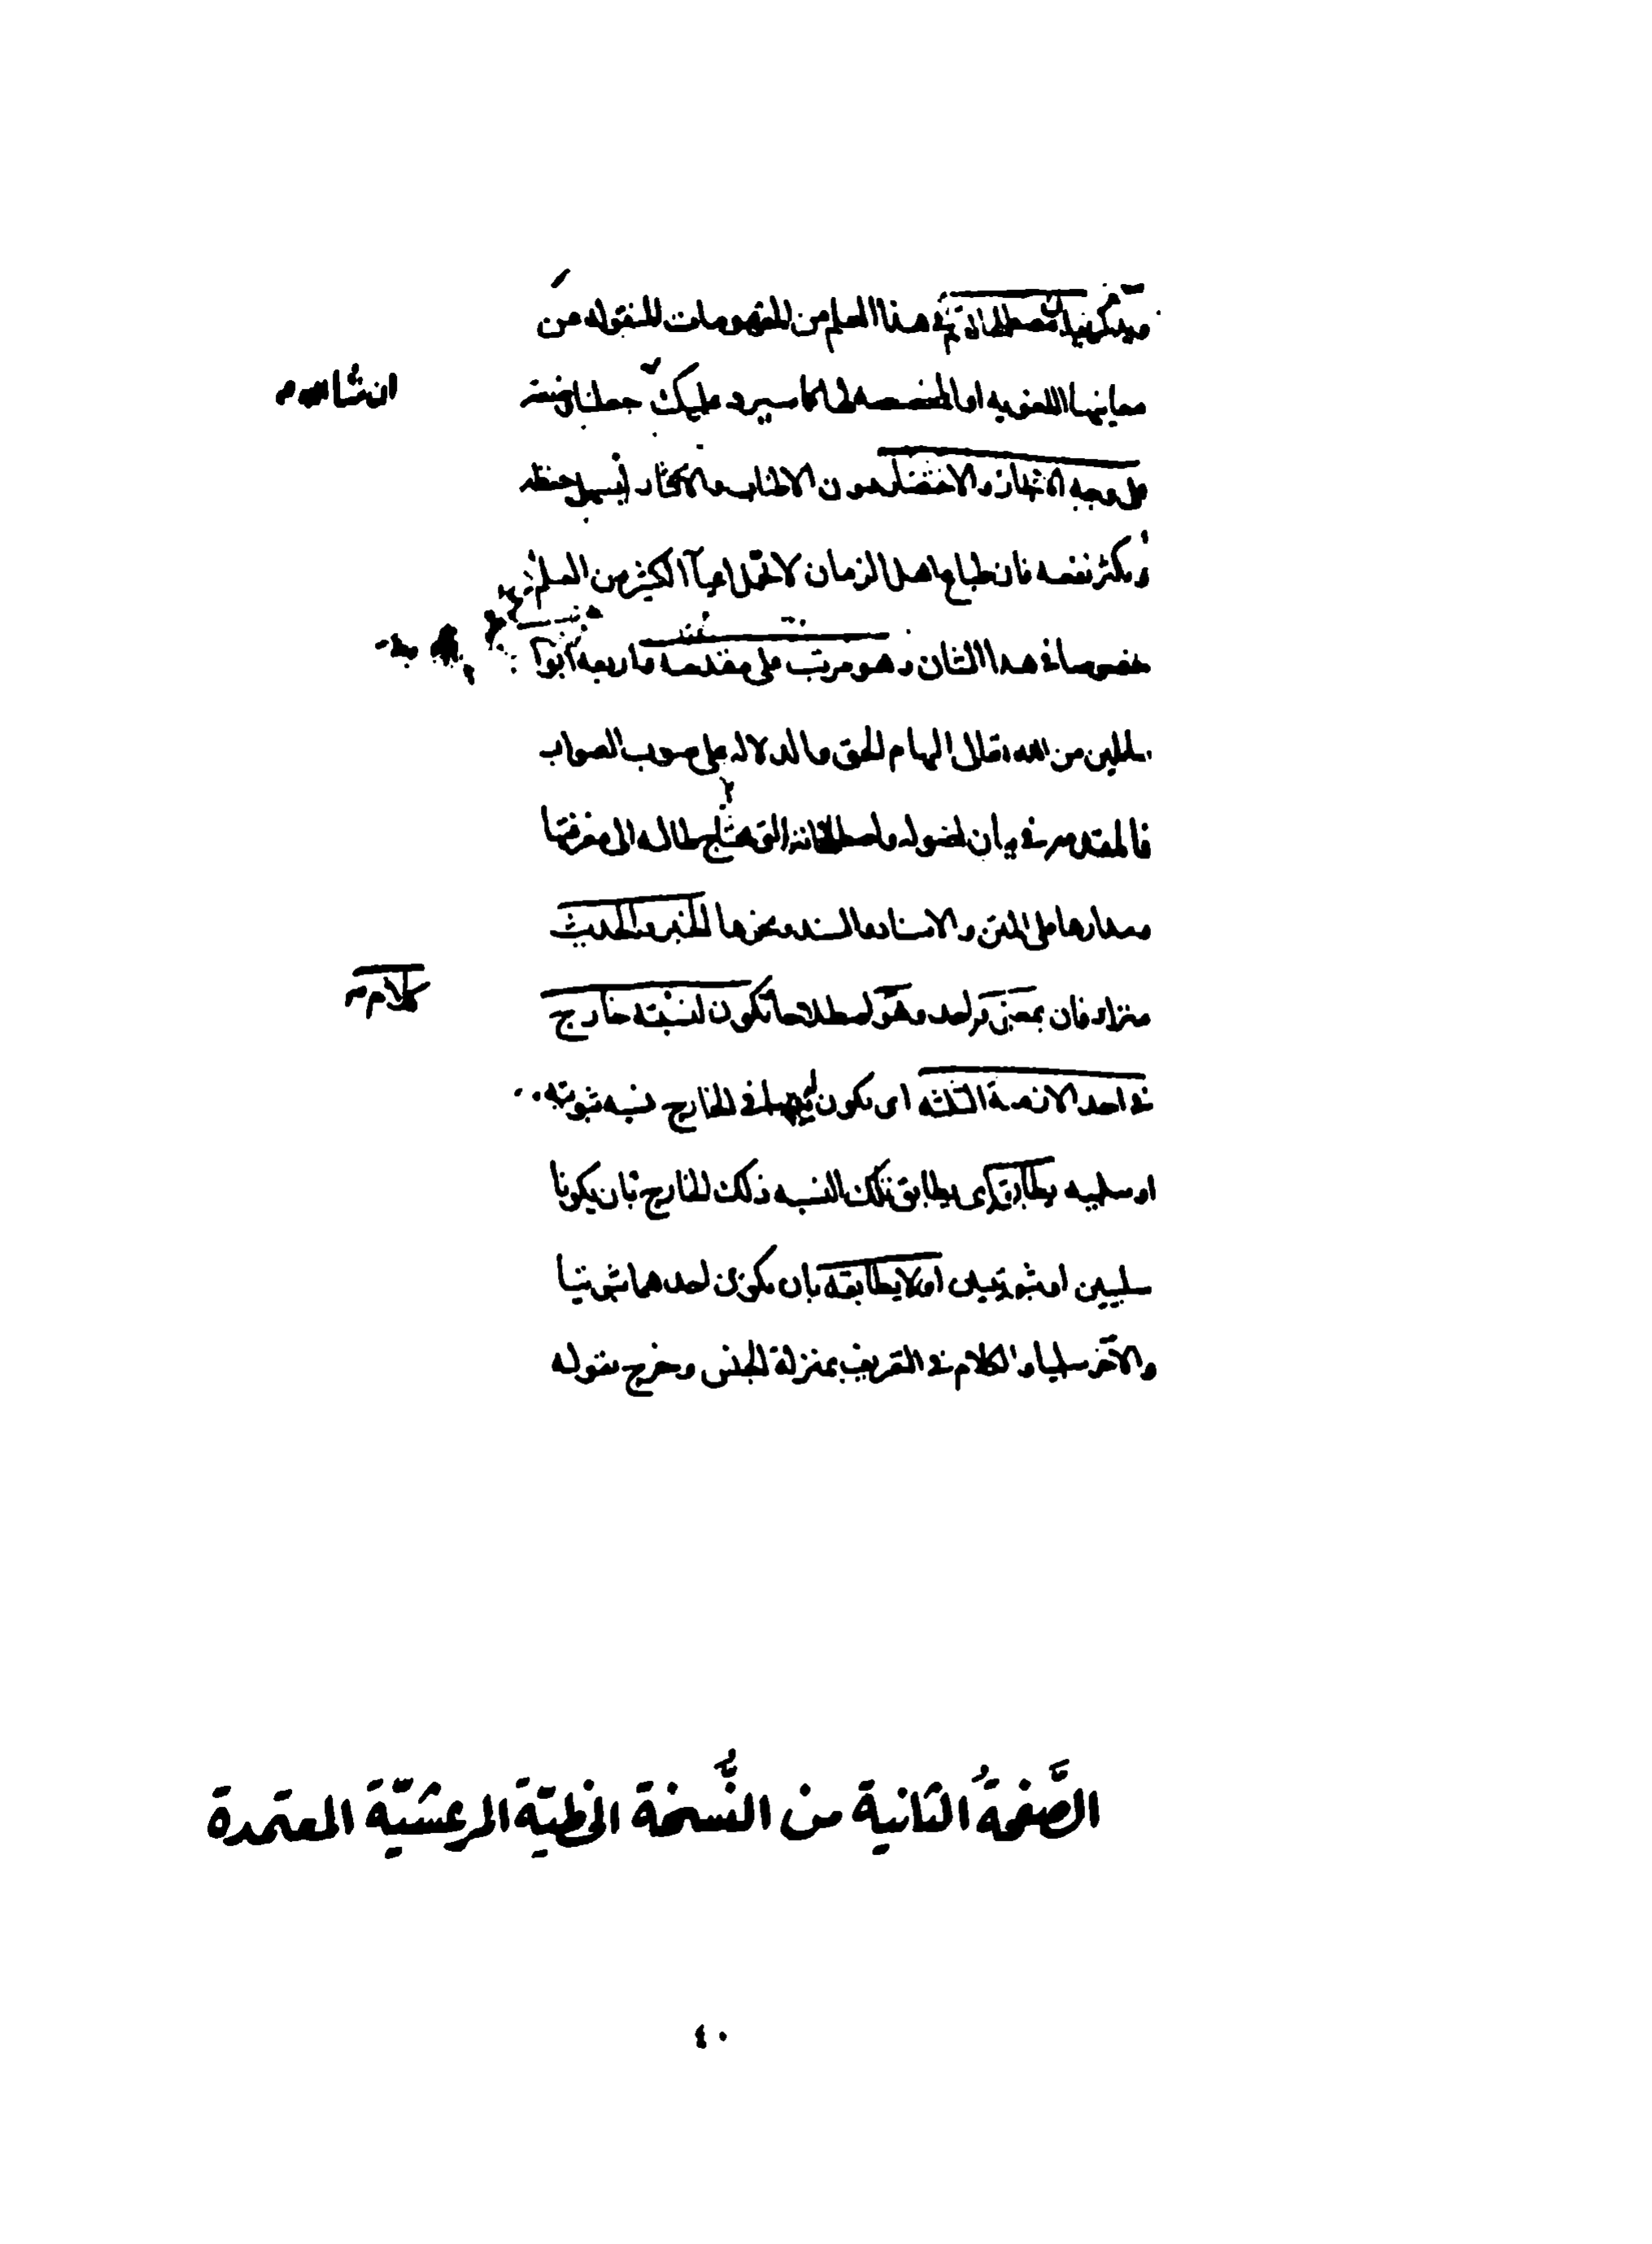 ويذكر فيه بيان مصطلحاتهم في هذا العلم من المفهومات المنقوله من
معانيها اللغويه او المخصصه لها كما سيرد عليك جعلنا
ان شا الله
على وجه الايجاز والاختصار دون الاطناب والاكثار ليسهل حفظه
ويكثر نفعه فان طباع اهل الزمان لا تحمل اعبآ الكثير من العلم
خصوصا في هذا الشان وهو مرتب على مقدمه واربعه ابوا
سائلين من الله تعالى الهام الحق والدلاله على صوب الصواب
فالمقدمه في بيان اصوله واصطلاحاته التي يحتاج طالبه الى معرفتها
ومدارها على المتن والاسناد والسند ونحوها الخبر والحديث
مترادفان بمعنى واحد وهو اصطلاحا يكون لنسبته خارج
كلام
في احد الازمنة الثلثه اى يكون له في الخارج نسبه ثبوتيه
او سلبيه يطابقه اى يطابق تلك النسبه ذلك الخارج بان يكونا
سلبيين او ثبوتيين او لا يطابقه بان يكون احدهما ثبوتيا
والآخر سلبيا والكلام في التعريف بمنزلة الجنس وخرج بقوله
الصَّفحةُ الثانية من النُّسخة الخطيّة المرعشيّة المعتمدة
٤٠